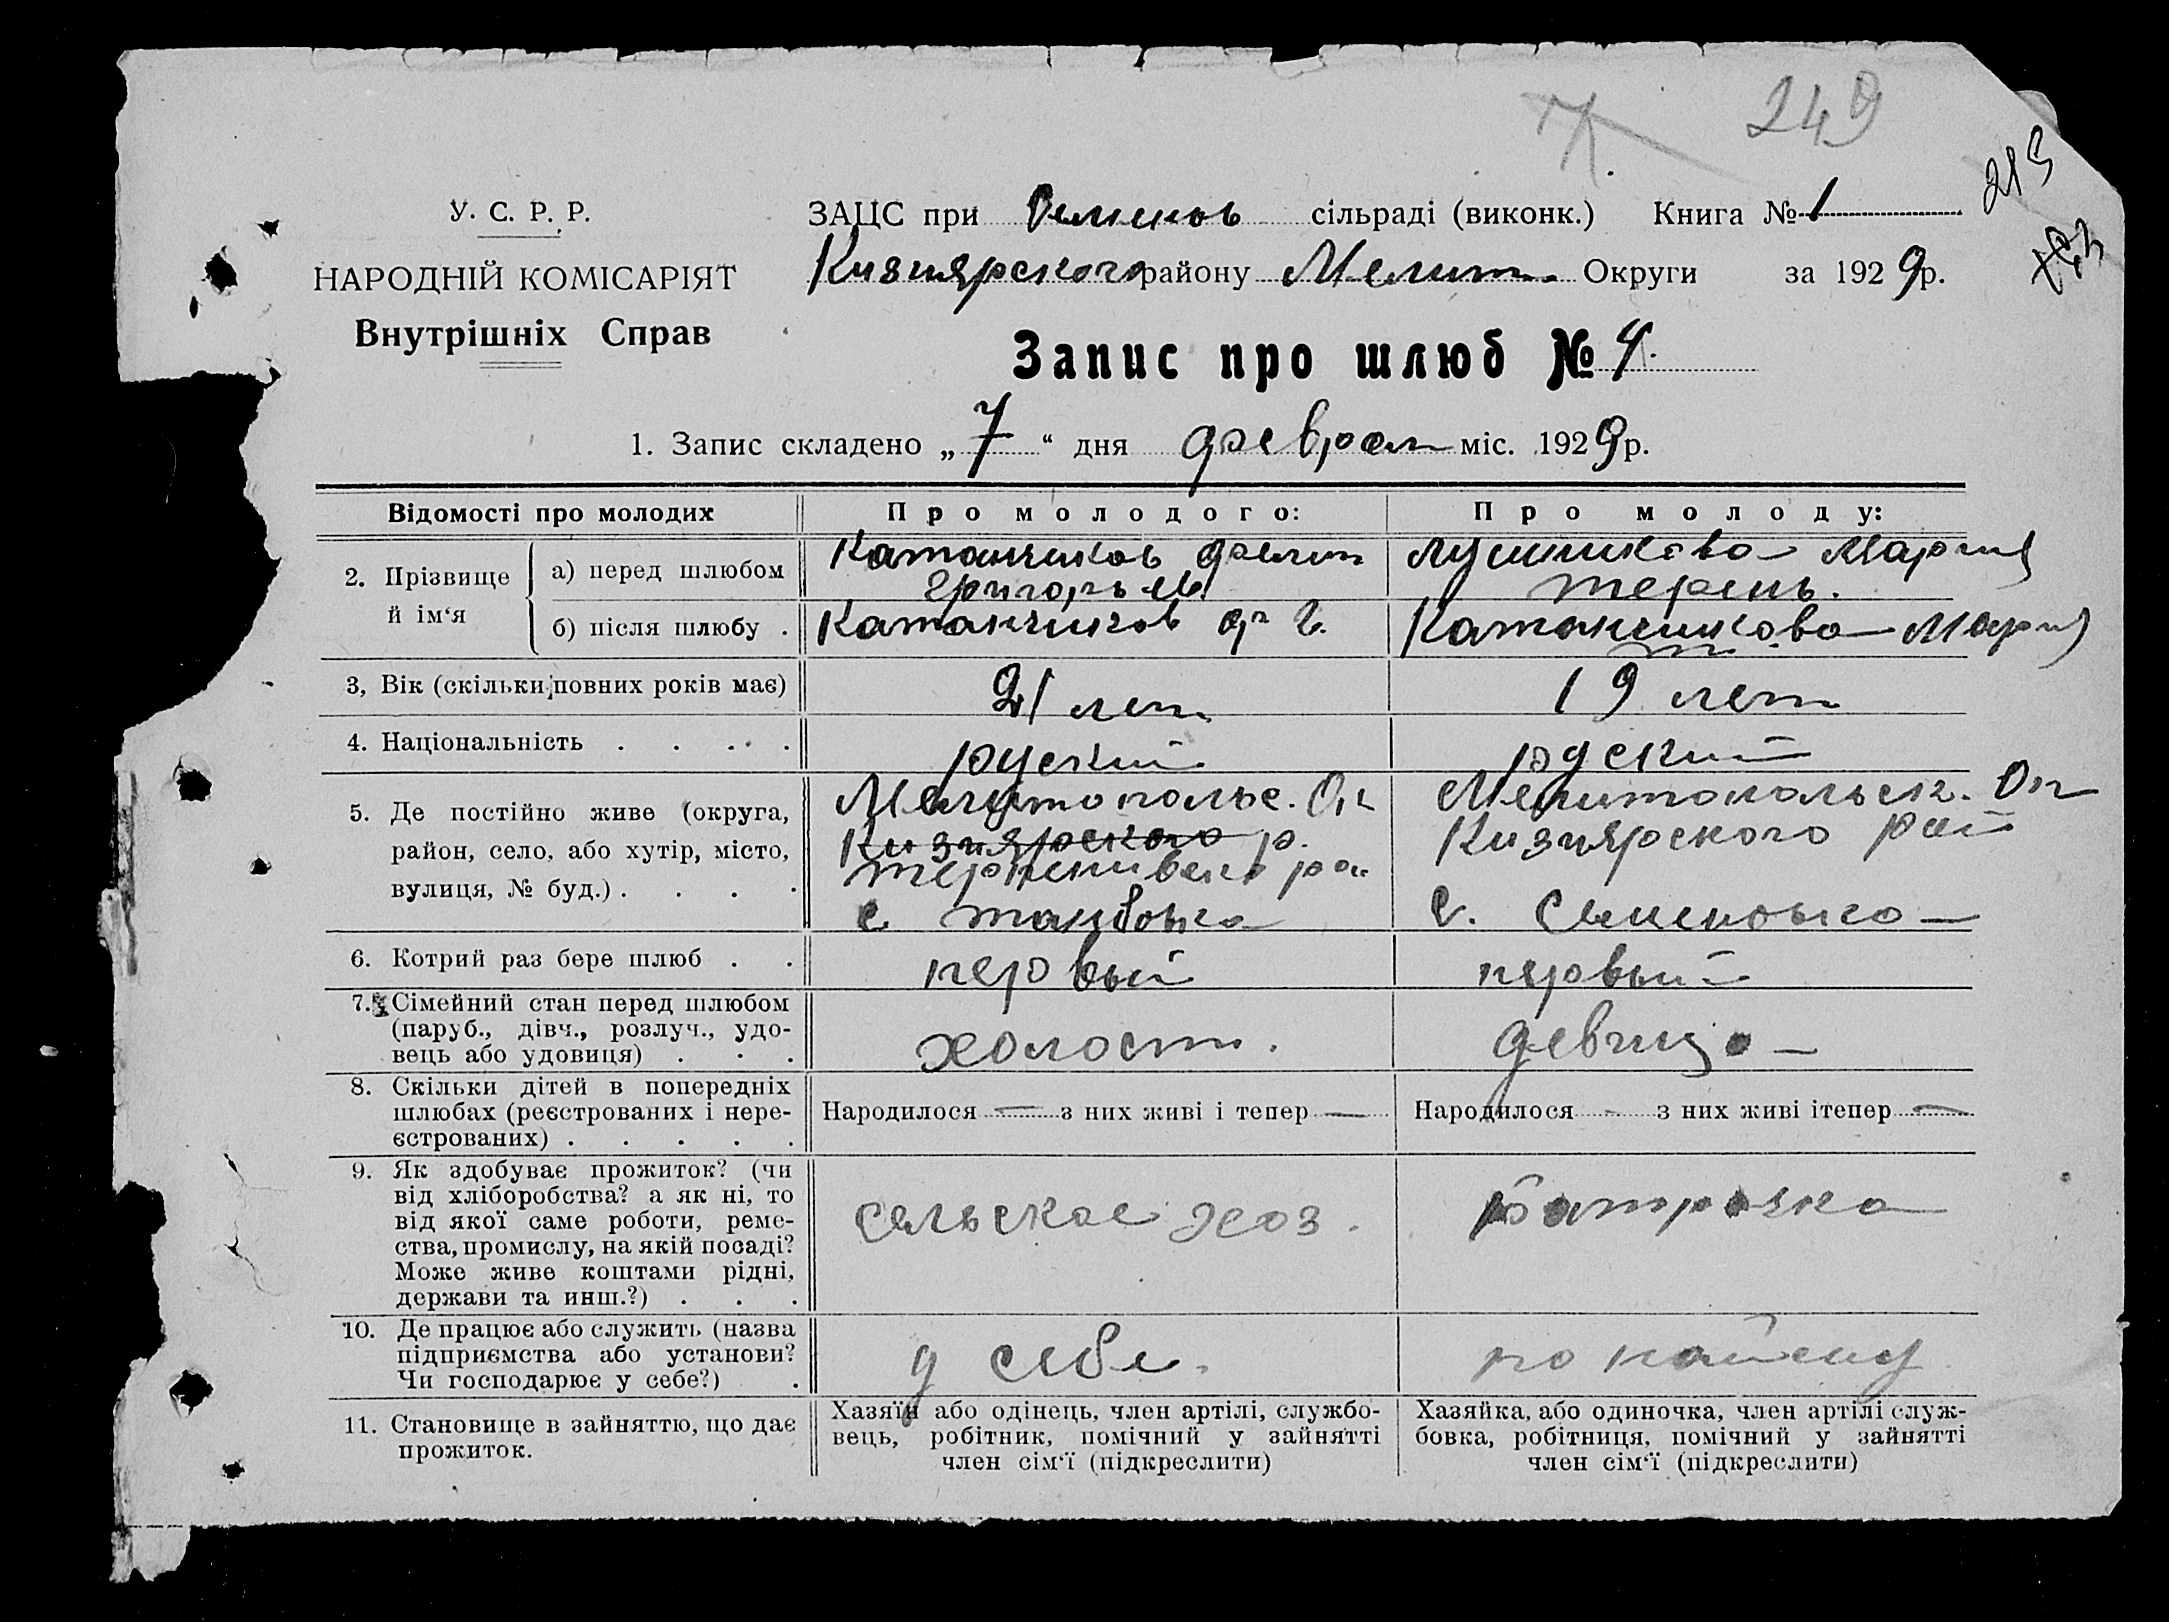 249
213
У. С. Р. Р.
НАРОДНІЙ КОМІСАРІЯТ
Внутрішніх Справ
ЗАЦС при сільраді (виконк.) Книга № 1
Кизиярского району Мелит. Округи за 1929 р.
Запис про шлюб № 4.
1. Запис складено „7“ дня феврал міс. 1929 р.
Відомості про молодих Про молодого: Про молоду:
2. Прізвище й ім‘я
а) перед шлюбом
Катанчиков Филип
Григорьев.
Лушникова Мария
Терень.
б) після шлюбу .
Катанчиков Ф. Г.
Катанчикова Мария
Т.
3, Вік (скільки повних років має) 21 лет 19 лет
4. Національність . . . . руский руский
5. Де постійно живе (округа,
район, село, або хутір, місто,
вулиця, № буд.) . . . .
Мелитопольс. Ок
Кизиярского р.
рай
с. Тамбовка
Мелитопольск. Ок
Кизиярского рай
с. Семеновко
6. Котрий раз бере шлюб . . первый первый
7. Сімейний стан перед шлюбом
(паруб., дівч., розлуч., удо-
вець або удовиця) . . .
холост.
девица
8. Скільки дітей в попередніх
шлюбах (реєстрованих і нере-
єстрованих) . . . . .
Народилося — з них живі і тепер —
Народилося - з них живі ітепер —
9. Як здобуває прожиток? (чи
від хліборобства? а як ні, то
від якої саме роботи, реме-
ства, промислу, на якій посаді?
Може живе коштами рідні,
держави та инш.?) . . .
сельское хоз.
батрачка
10. Де працює або служить (назва
підприємства або установи?
Чи господарює у себе?) .
у себе.
по найему
11. Становище в зайняттю, що дає
прожиток.
Хазяїн або одінець, член артілі, службо-
вець, робітник, помічний у зайнятті
член сім‘ї (підкреслити)
Хазяйка, або одиночка, член артілі служ-
бовка, робітниця, помічний у зайнятті
член сім‘ї (підкреслити)